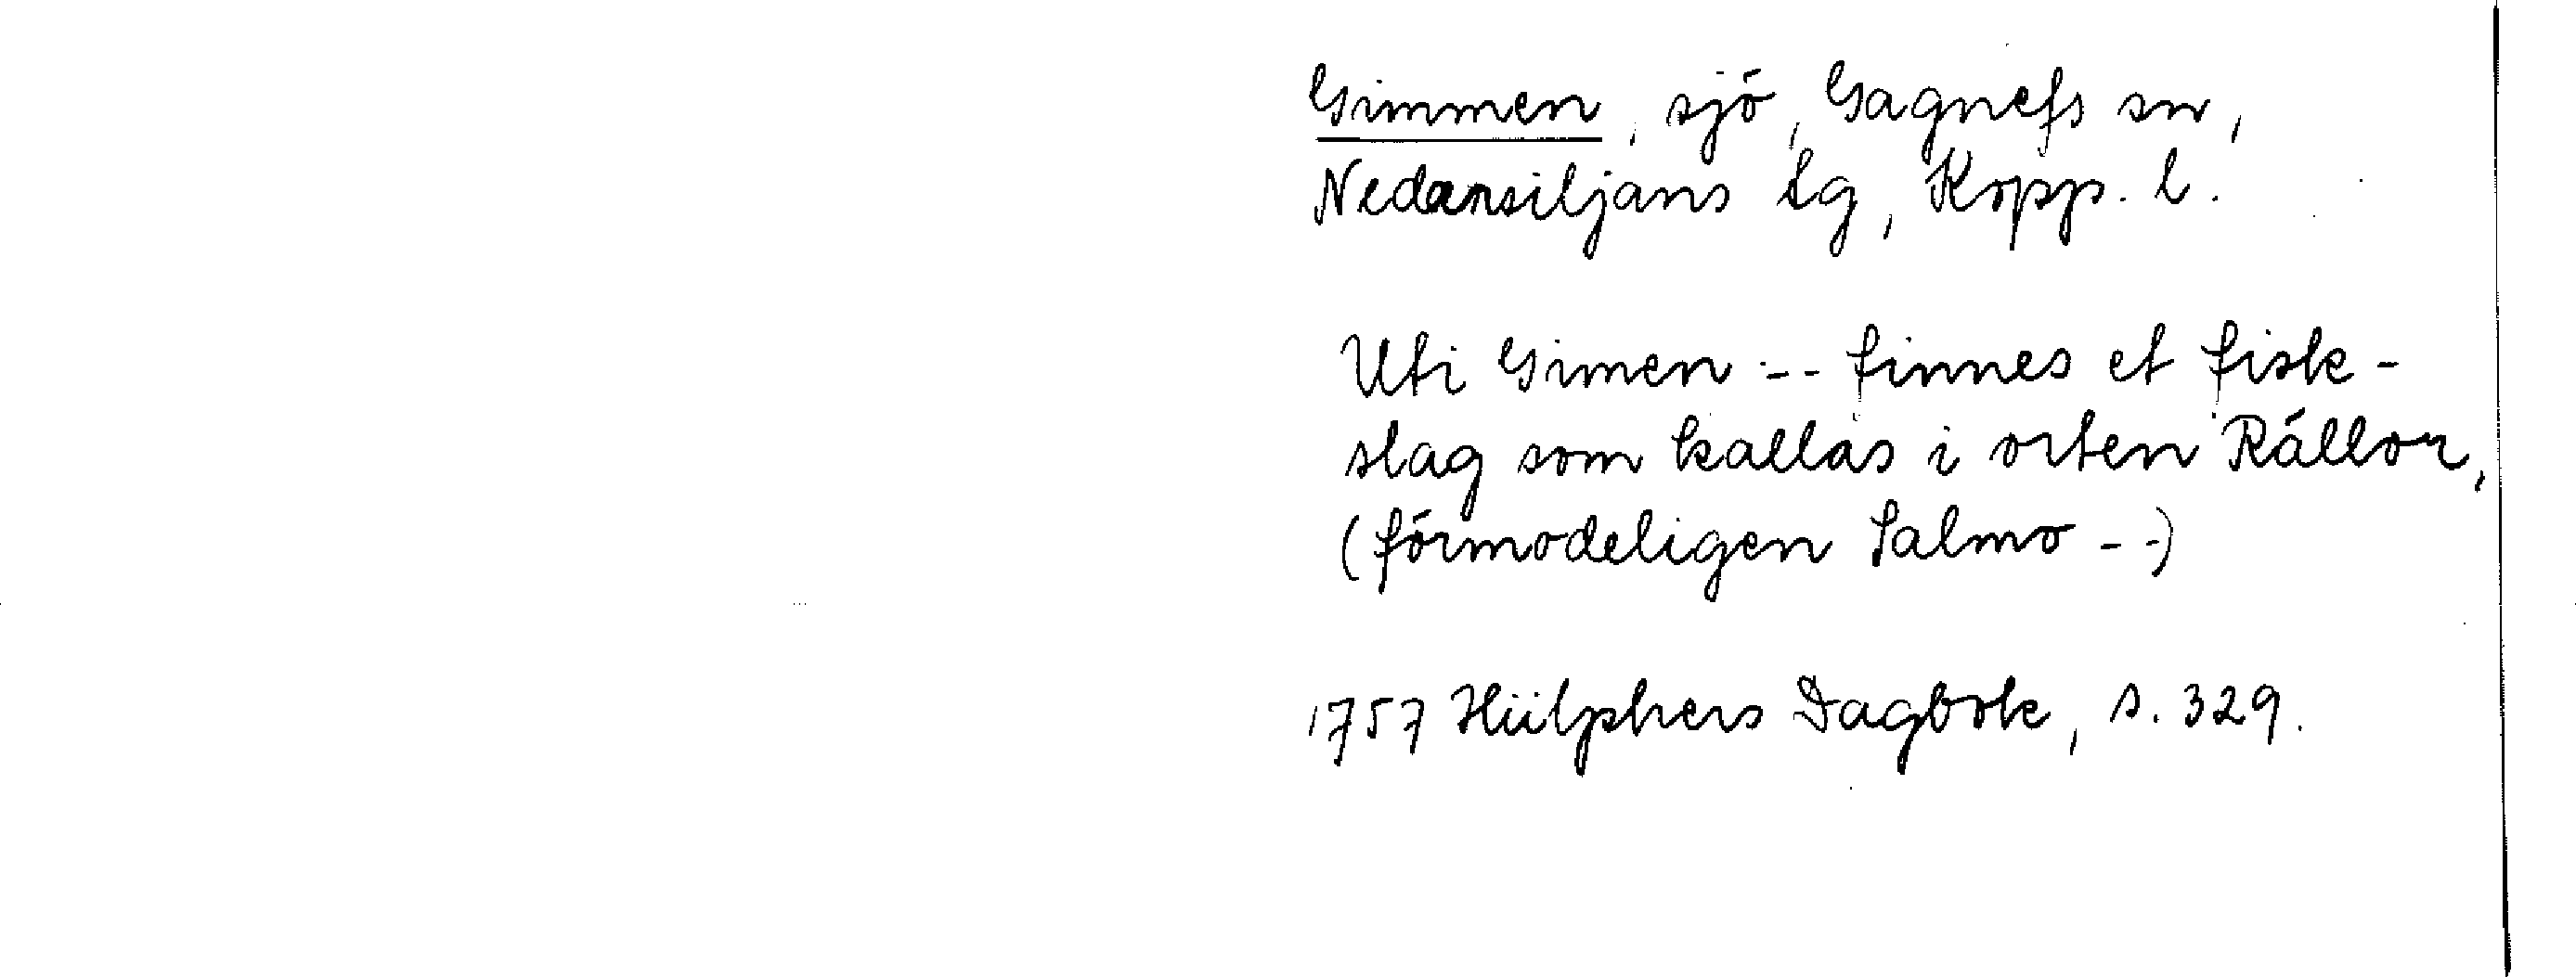 Gimmen, sjö, Gagnefs sn,
Nedansiljans tg, Kopp. l.
Uti Gimen -- finnes et fisk-
slag som kallas i orten Rällor,
(förmodeligen Salmo --)
1757 Hülphers Dagbok, s. 329.